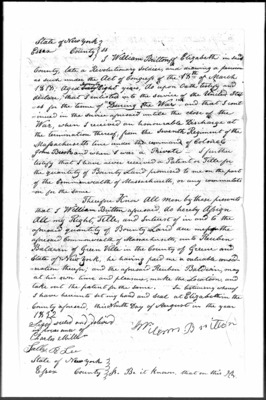 State of New York
Essex County ss
I William Britton of Elizabeth in said
County, late a Revolutionary Soldier and drawing a pension
as such under the Act of Congress of the 18th of March
1818, Aged eight years, do upon oath testify and
declare, that I enlisted into the service of the United States
as for the term of "During the War" and that I cont
inued in the service aforesaid untill the close of the
War, when I received an honourable Discharge at
the termination thereof, from the Seventh Regiment of the
Massachusetts line under the command of Colonel
John Brooks and when I was a Private I further
testify that I have never received a Patent or Title for
the quantity of Bounty Land promised to me on the part
of the Commonwealth of Massachusetts, or any
on for the
Therefore Know All Men by these presents
that I William Britton aforesaid, do hereby Assign
All my Right, Title, and Interest of in and to the
aforesaid quantity of Bounty Land
aforesaid Commonwealth of Massachusetts, unto Reuben
Baldwin of Green Ville in the County of Greene and
State of New York, he having paid me a valuable consid
eration therefor, and the aforesaid Reuben Baldwin, may
at his own time and pleasure, make the Location and
take out the patent for the same. In witness whereof
I have hereunto set my hand and seal at Elizabeth in the
County aforesaid, this Ninth Day of August in the year
1822
Signed sealed and delivered
in presence of
Charles Miller
William Britton
State of New York
Essex County ss. Be it known, that on this